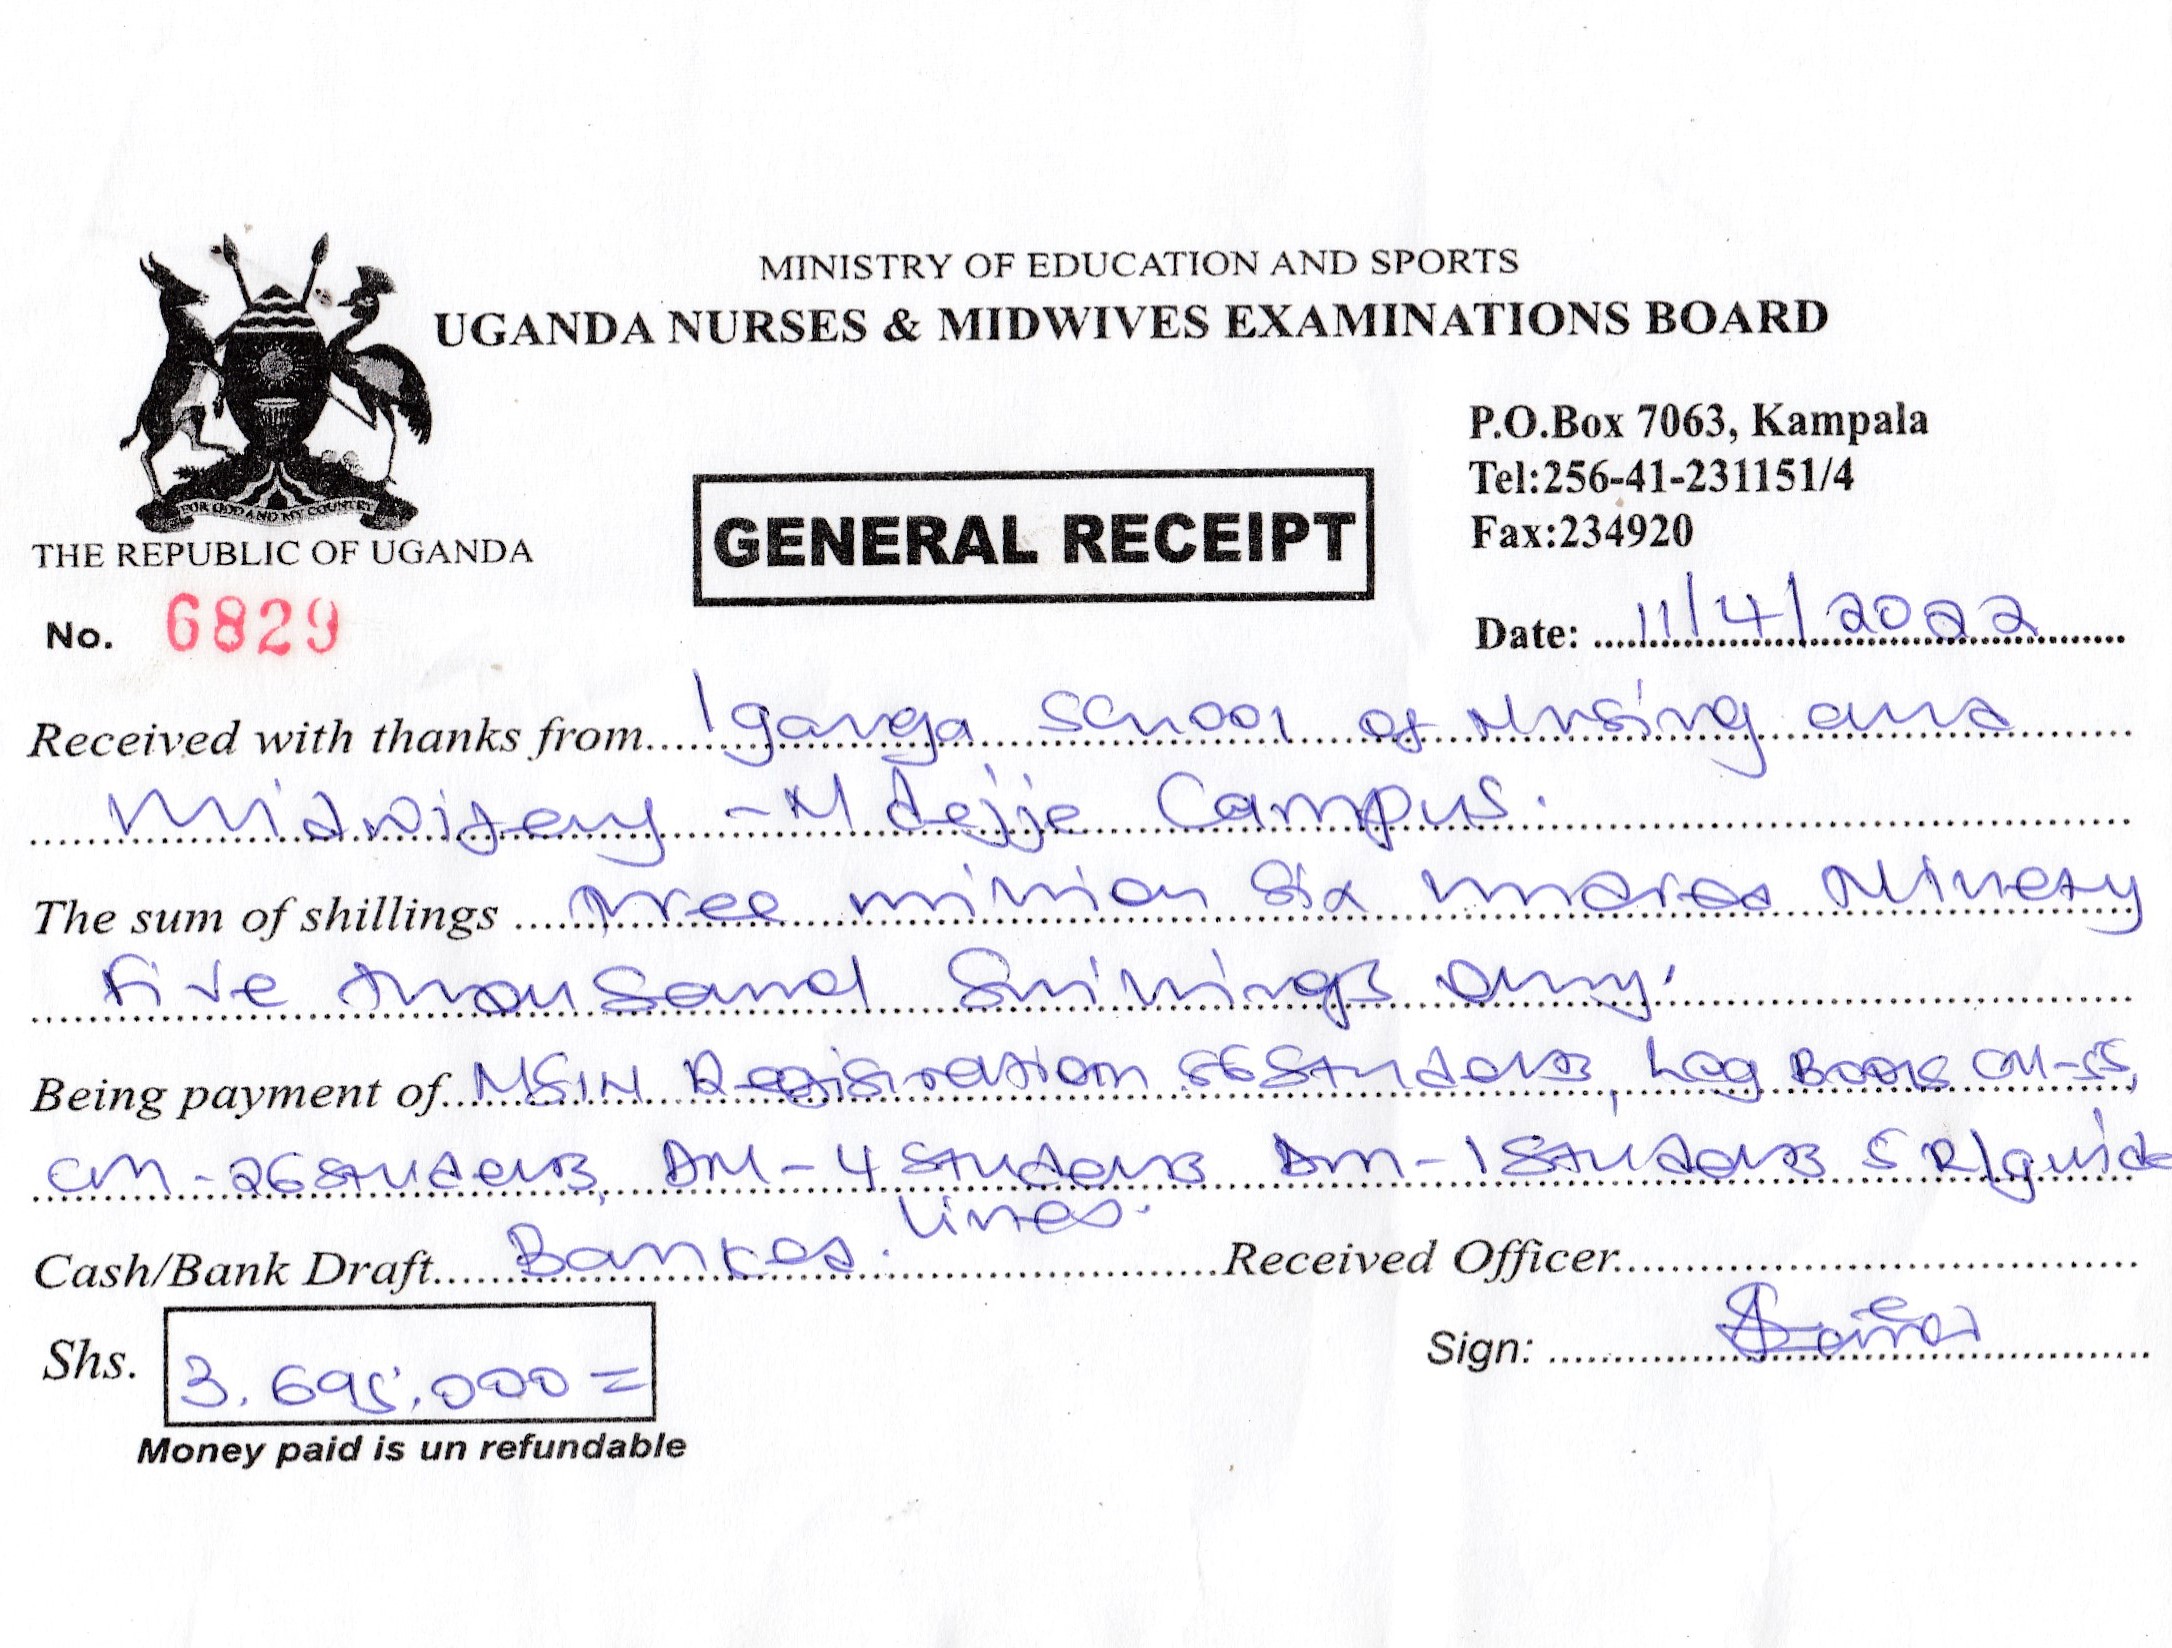 MINISTRY OF EDUCATION AND SPORTS
UGANDA NURSES & MIDWIVES EXAMINATIONS BOARD
FOR GOD AND MY COUNTRY
THE REPUBLIC OF UGANDA
P.O.Box 7063, Kampala
Tel:256-41-231151/4
Fax:234920
GENERAL RECEIPT
No. 6829
Date: 11/4/2022
Received with thanks from Iganga School of Nursing and
Midwifery - Ndejje Campus.
The sum of shillings Three million Six hundred Ninety
Five thousand Shillings Only.
Being payment of NSIN Registration 56 Students, Log Books CN-55,
CM-26 Students, DM-4 Students DM-1 Students 5 R/guide
lines.
Cash/Bank Draft Banked. Received Officer
Shs. 3,695,000=
Sign:
Money paid is un refundable